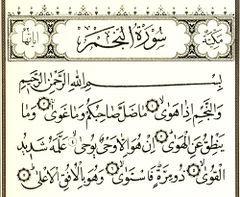 سُورَةُ النَّجْمِ
مَكِّيَّة
بِسْمِ اللَّهِ الرَّحْمَٰنِ الرَّحِيمِ
وَالنَّجْمِ إِذَا هَوَىٰ ۝ مَا ضَلَّ صَاحِبُكُمْ وَمَا غَوَىٰ ۝ وَمَا
يَنطِقُ عَنِ الْهَوَىٰ ۝ إِنْ هُوَ إِلَّا وَحْيٌ يُوحَىٰ ۝ عَلَّمَهُ شَدِيدُ
الْقُوَىٰ ۝ ذُو مِرَّةٍ فَاسْتَوَىٰ ۝ وَهُوَ بِالْأُفُقِ الْأَعْلَىٰ ۝